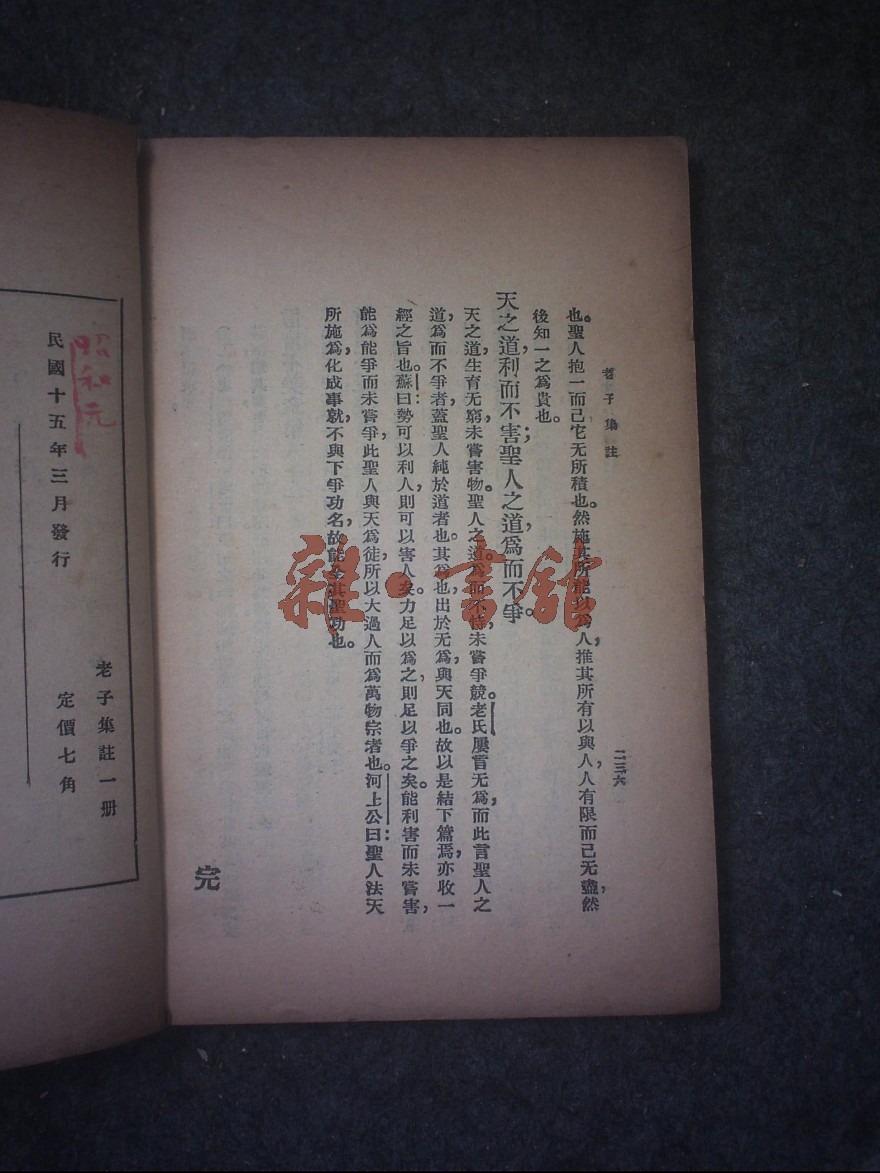 老子集註
二三六
也。聖人抱一而已它无所積也。然施其所能以爲人，推其所有以與人，人有限而己无盡，然
後知一之爲貴也。
天之道，利而不害；聖人之道，爲而不爭。
天之道，生育无窮，未嘗害物。聖人之道。爲而不恃，未嘗爭競。老氏屢嘗无爲，而此言聖人之
道，爲而不爭者，蓋聖人純於道者也。其爲也，出於无爲，與天同也。故以是結下篇焉，亦收一
經之旨也。蘇曰：勢可以利人，則可以害人矣。力足以爲之，則足以爭之矣。能利害而未嘗害，
能爲能爭而未嘗爭，此聖人與天爲徒，所以大過人而爲萬物宗者也。河上公曰：聖人法天
所施爲，化成事就，不與下爭功名，故能全其聖功也。
完
雜·書館
老子集註一册
定價七角
民國十五年三月發行
昭和元